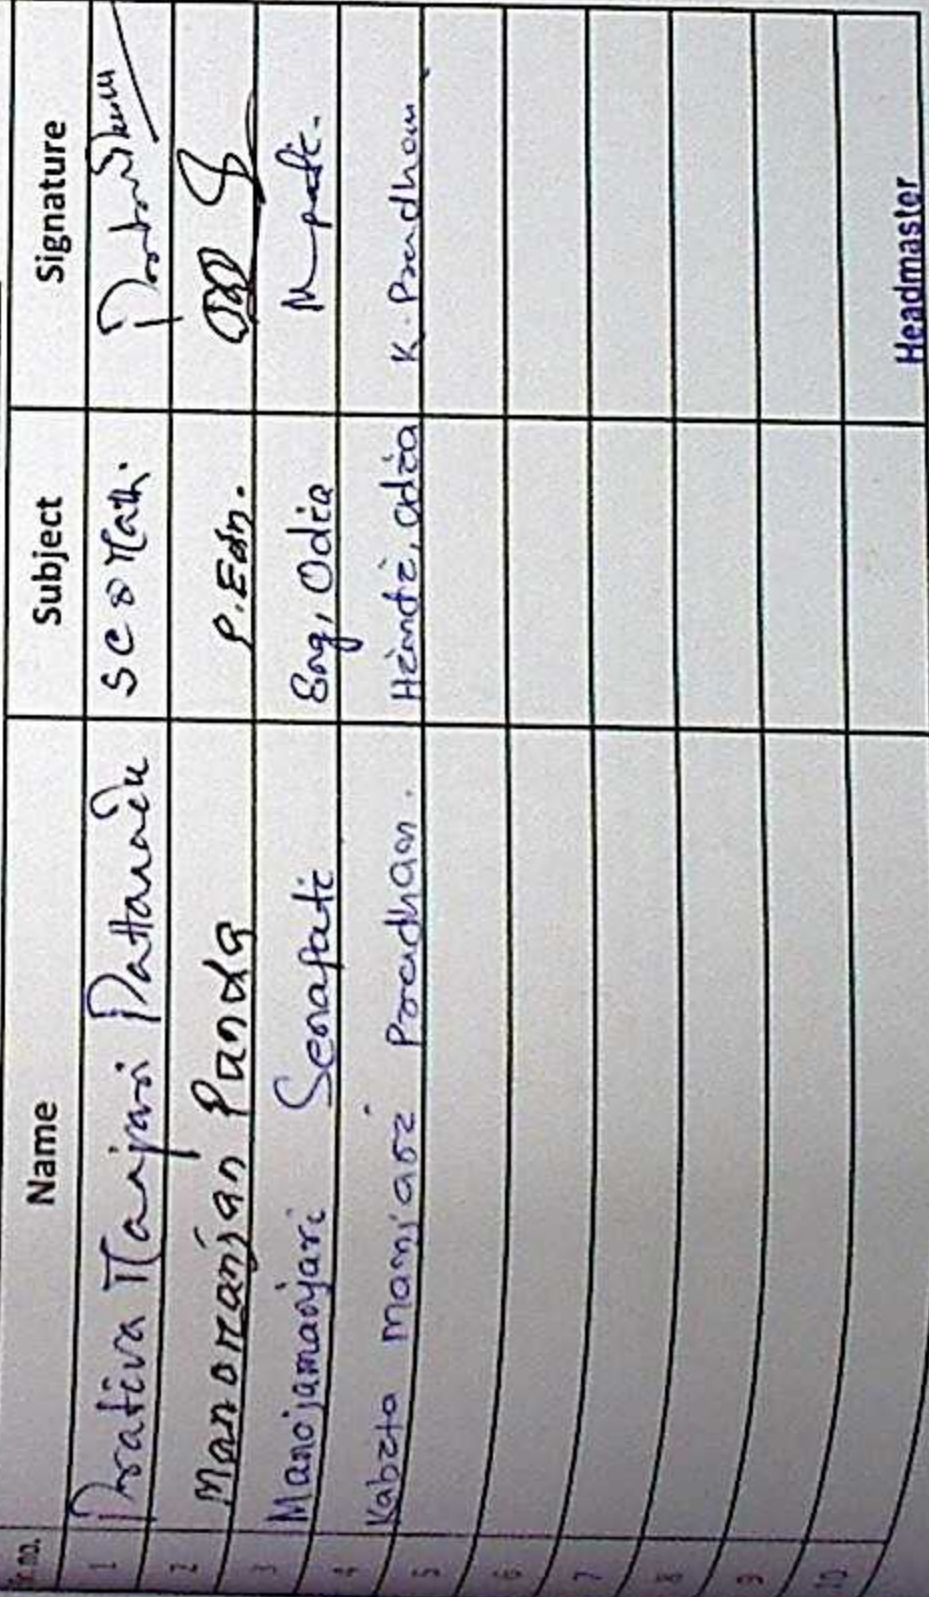 Sr.no. Name Subject Signature
1 Prativa Manjari Pattanaik SC & Math.
2 Manoranjan Panda P.Edn.
3 Manojamanjari Senapati Eng, Odia
4 Kabita manjari Pradhan. Hindi, odia K. Pradhan
5
6
7
8
9
10
Headmaster